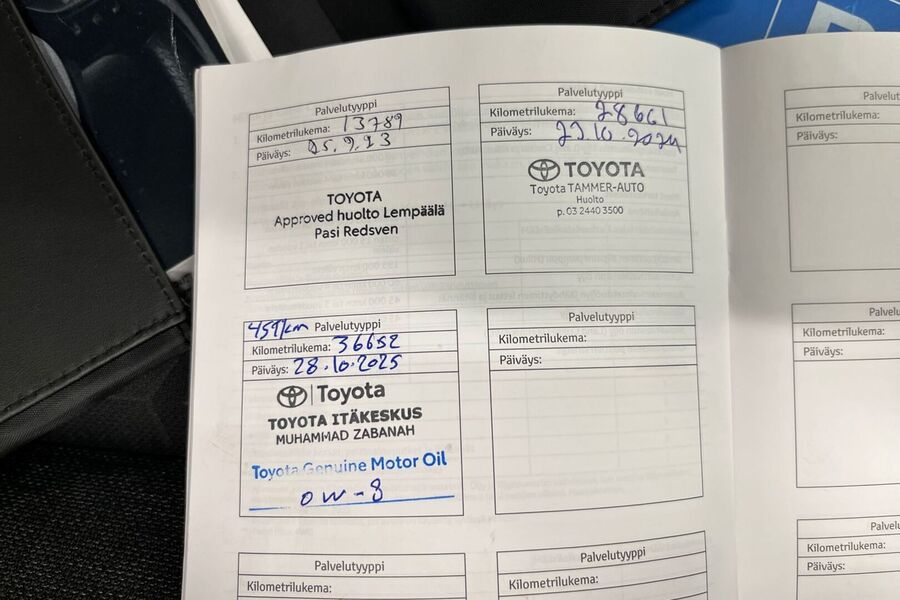 Palvelutyyppi
Kilometrilukema: 13789
Päiväys: 25.9.23
TOYOTA
Approved huolto Lempäälä
Pasi Redsven
Palvelutyyppi
Kilometrilukema: 28661
Päiväys: 22.10.2024
TOYOTA
Toyota TAMMER-AUTO
Huolto
p. 03 2440 3500
Palvelutyyppi
Kilometrilukema:
Päiväys:
Palvelutyyppi
Kilometrilukema: 36652
Päiväys: 28.10.2025
Toyota
TOYOTA ITÄKESKUS
MUHAMMAD ZABANAH
Toyota Genuine Motor Oil
0W-8
Palvelutyyppi
Kilometrilukema:
Päiväys:
Kilometrilukema:
Päiväys:
Palvelutyyppi
Kilometrilukema:
Palvelutyyppi
Kilometrilukema:
Kilometrilukema:
Päiväys: